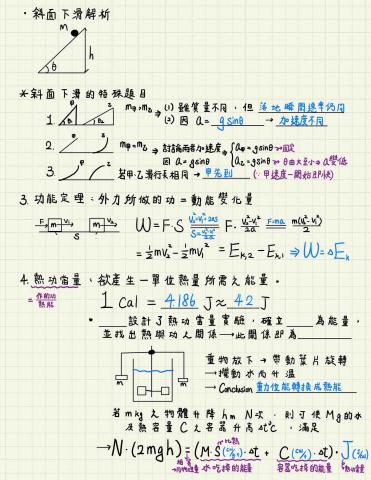 ·斜面下滑解析
m
h
θ
*斜面下滑的特殊題目
1. 甲 乙 m甲>m乙 ⇒ (1) 雖質量不同,但落地瞬間速率仍同
(2) 因 a = gsinθ → 加速度不同
2. m甲=m乙 ⇒ 討論兩者加速度 ⇒ { a甲=gsinθ 固定
因 a=gsinθ a乙=gsinθ θ由大至小⇒a變低
3. 甲 乙 若甲.乙滑行長相同→甲先到 (∵甲速度一開始即快)
3. 功能定理:外力所做的功=動能變化量
F m V₁ m V₂ S
W=F·S V₂²=V₁²+2aS S=V₂²-V₁²/2a F·V₂²-V₁²/2a F=ma m(V₂²-V₁²)/2
=½mV₂²-½mV₁²=Ek₂-Ek₁⇒W=ΔEk
4. 熱功當量:欲產生一單位熱量所需之能量。
=作的功/熱能
1 Cal = 4186 J ≈ 42 J
* ____設計了熱功當量實驗,確立____為能量,
並找出熱與功之關係→此關係即為____
m m
重物放下→帶動葉片旋轉
→攪動水而升溫
→Conclusion 重力位能轉換成熱能
若 m kg 之物體升降 h m N次,則可使 Mg 的水
及熱容量 C 之容器升高 Δt℃,滿足
→N·(2mgh)=(M·S(cal/g·℃)·Δt + C(cal/℃)·Δt)·J(J/cal)
比熱
水吃掉的能量 容器吃掉的能量 熱功當量